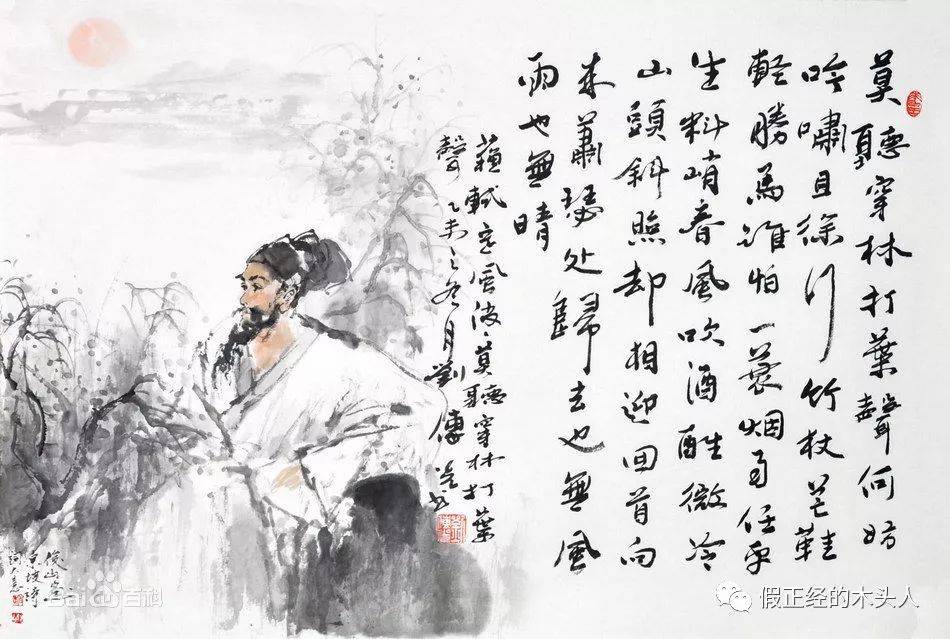 莫聽穿林打葉聲何妨
吟嘯且徐行竹杖芒鞋
輕勝馬誰怕一蓑烟雨任平
生料峭春風吹酒醒微冷
山頭斜照却相迎回首向
来蕭瑟处歸去也無風
雨也無晴
蘇軾定風波莫聽穿林打葉
聲乙未之冬月劉傳
東坡詩
Baidu百科
假正经的木头人